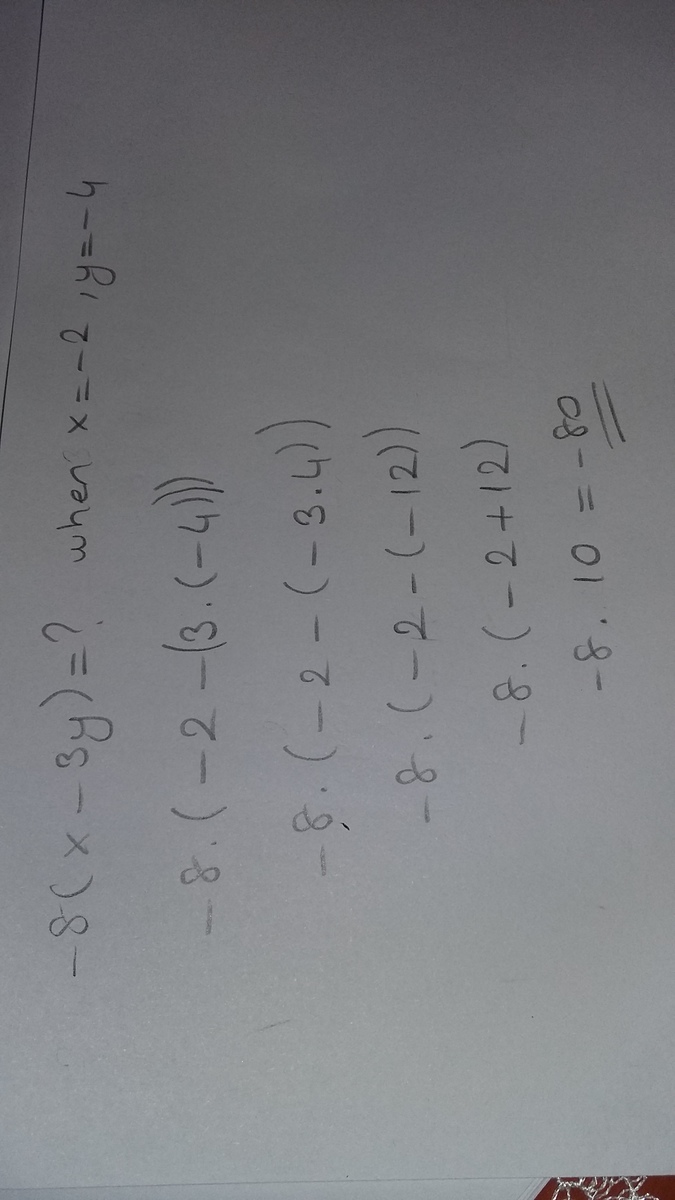 -8(x-3y)=? when x=-2, y=-4
-8.(-2-(3.(-4)))
-8.(-2-(-3.4))
-8.(-2-(-12))
-8.(-2+12)
-8.10=-80